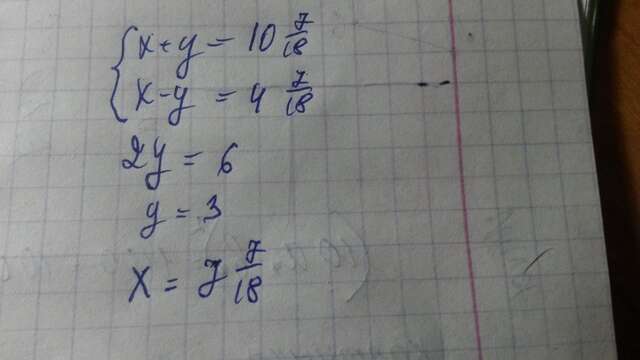 x+y = 10 7/18
x-y = 4 7/18
2y = 6
y = 3
x = 7 7/18